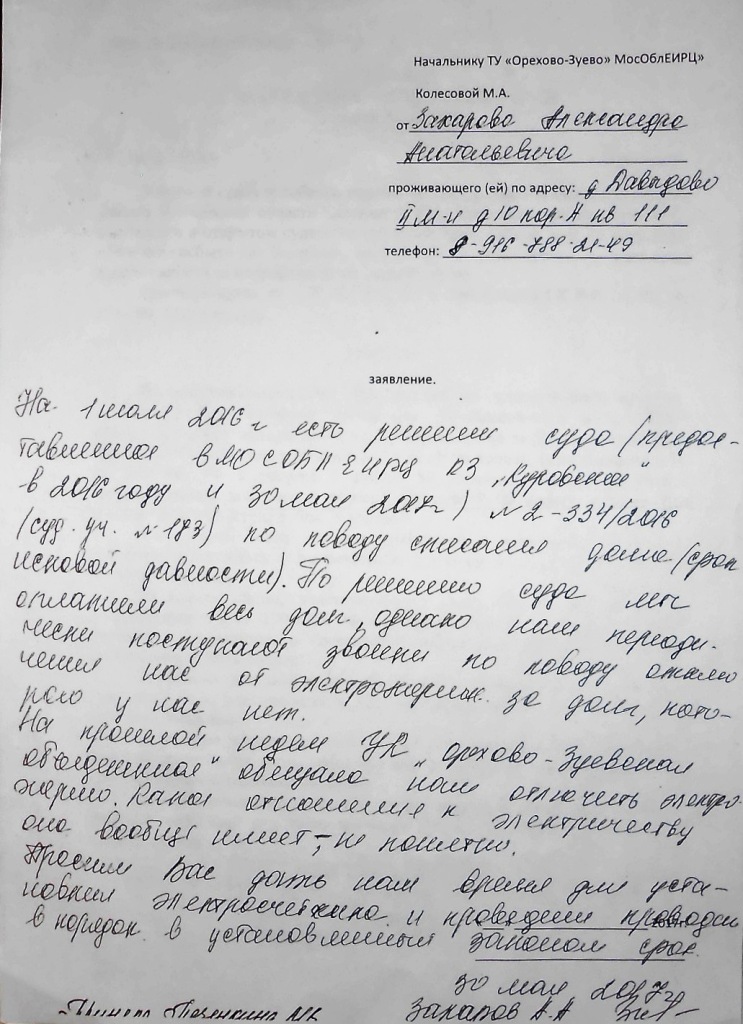 Начальнику ТУ «Орехово-Зуево» МосОблЕИРЦ»
Колесовой М.А.
от Захарова Александра
Анатольевича
проживающего (ей) по адресу: д Давыдово
II м-н д 10 кв 111
телефон: 8-916-788-21-49
заявление.
На 1 июля 2016 г есть решение суда (предос-
тавленное в МОСОБЛЕИРЦ ПЗ „Куровское"
в 2016 году и 30 мая 2017г) № 2-334/2016
(суд. уч. № 173) по поводу списания долга (срок
исковой давности). По решению суда мы
оплатили весь долг, однако нам периоди-
чески поступают звонки по поводу отклю
чения нас от электроэнергии за долг, кото-
рого у нас нет.
На прошлой неделе УК „Орехово-Зуевская
объединенная" обещала нам отключить электро-
энергию. Какое отношение к электричеству
она вообще имеет – не понятно.
Просим Вас дать нам время для уста-
новки электросчетчика и проведения проводки
в порядок в установленный законом срок.
30 мая 2017г
Захаров А.А
Приняла